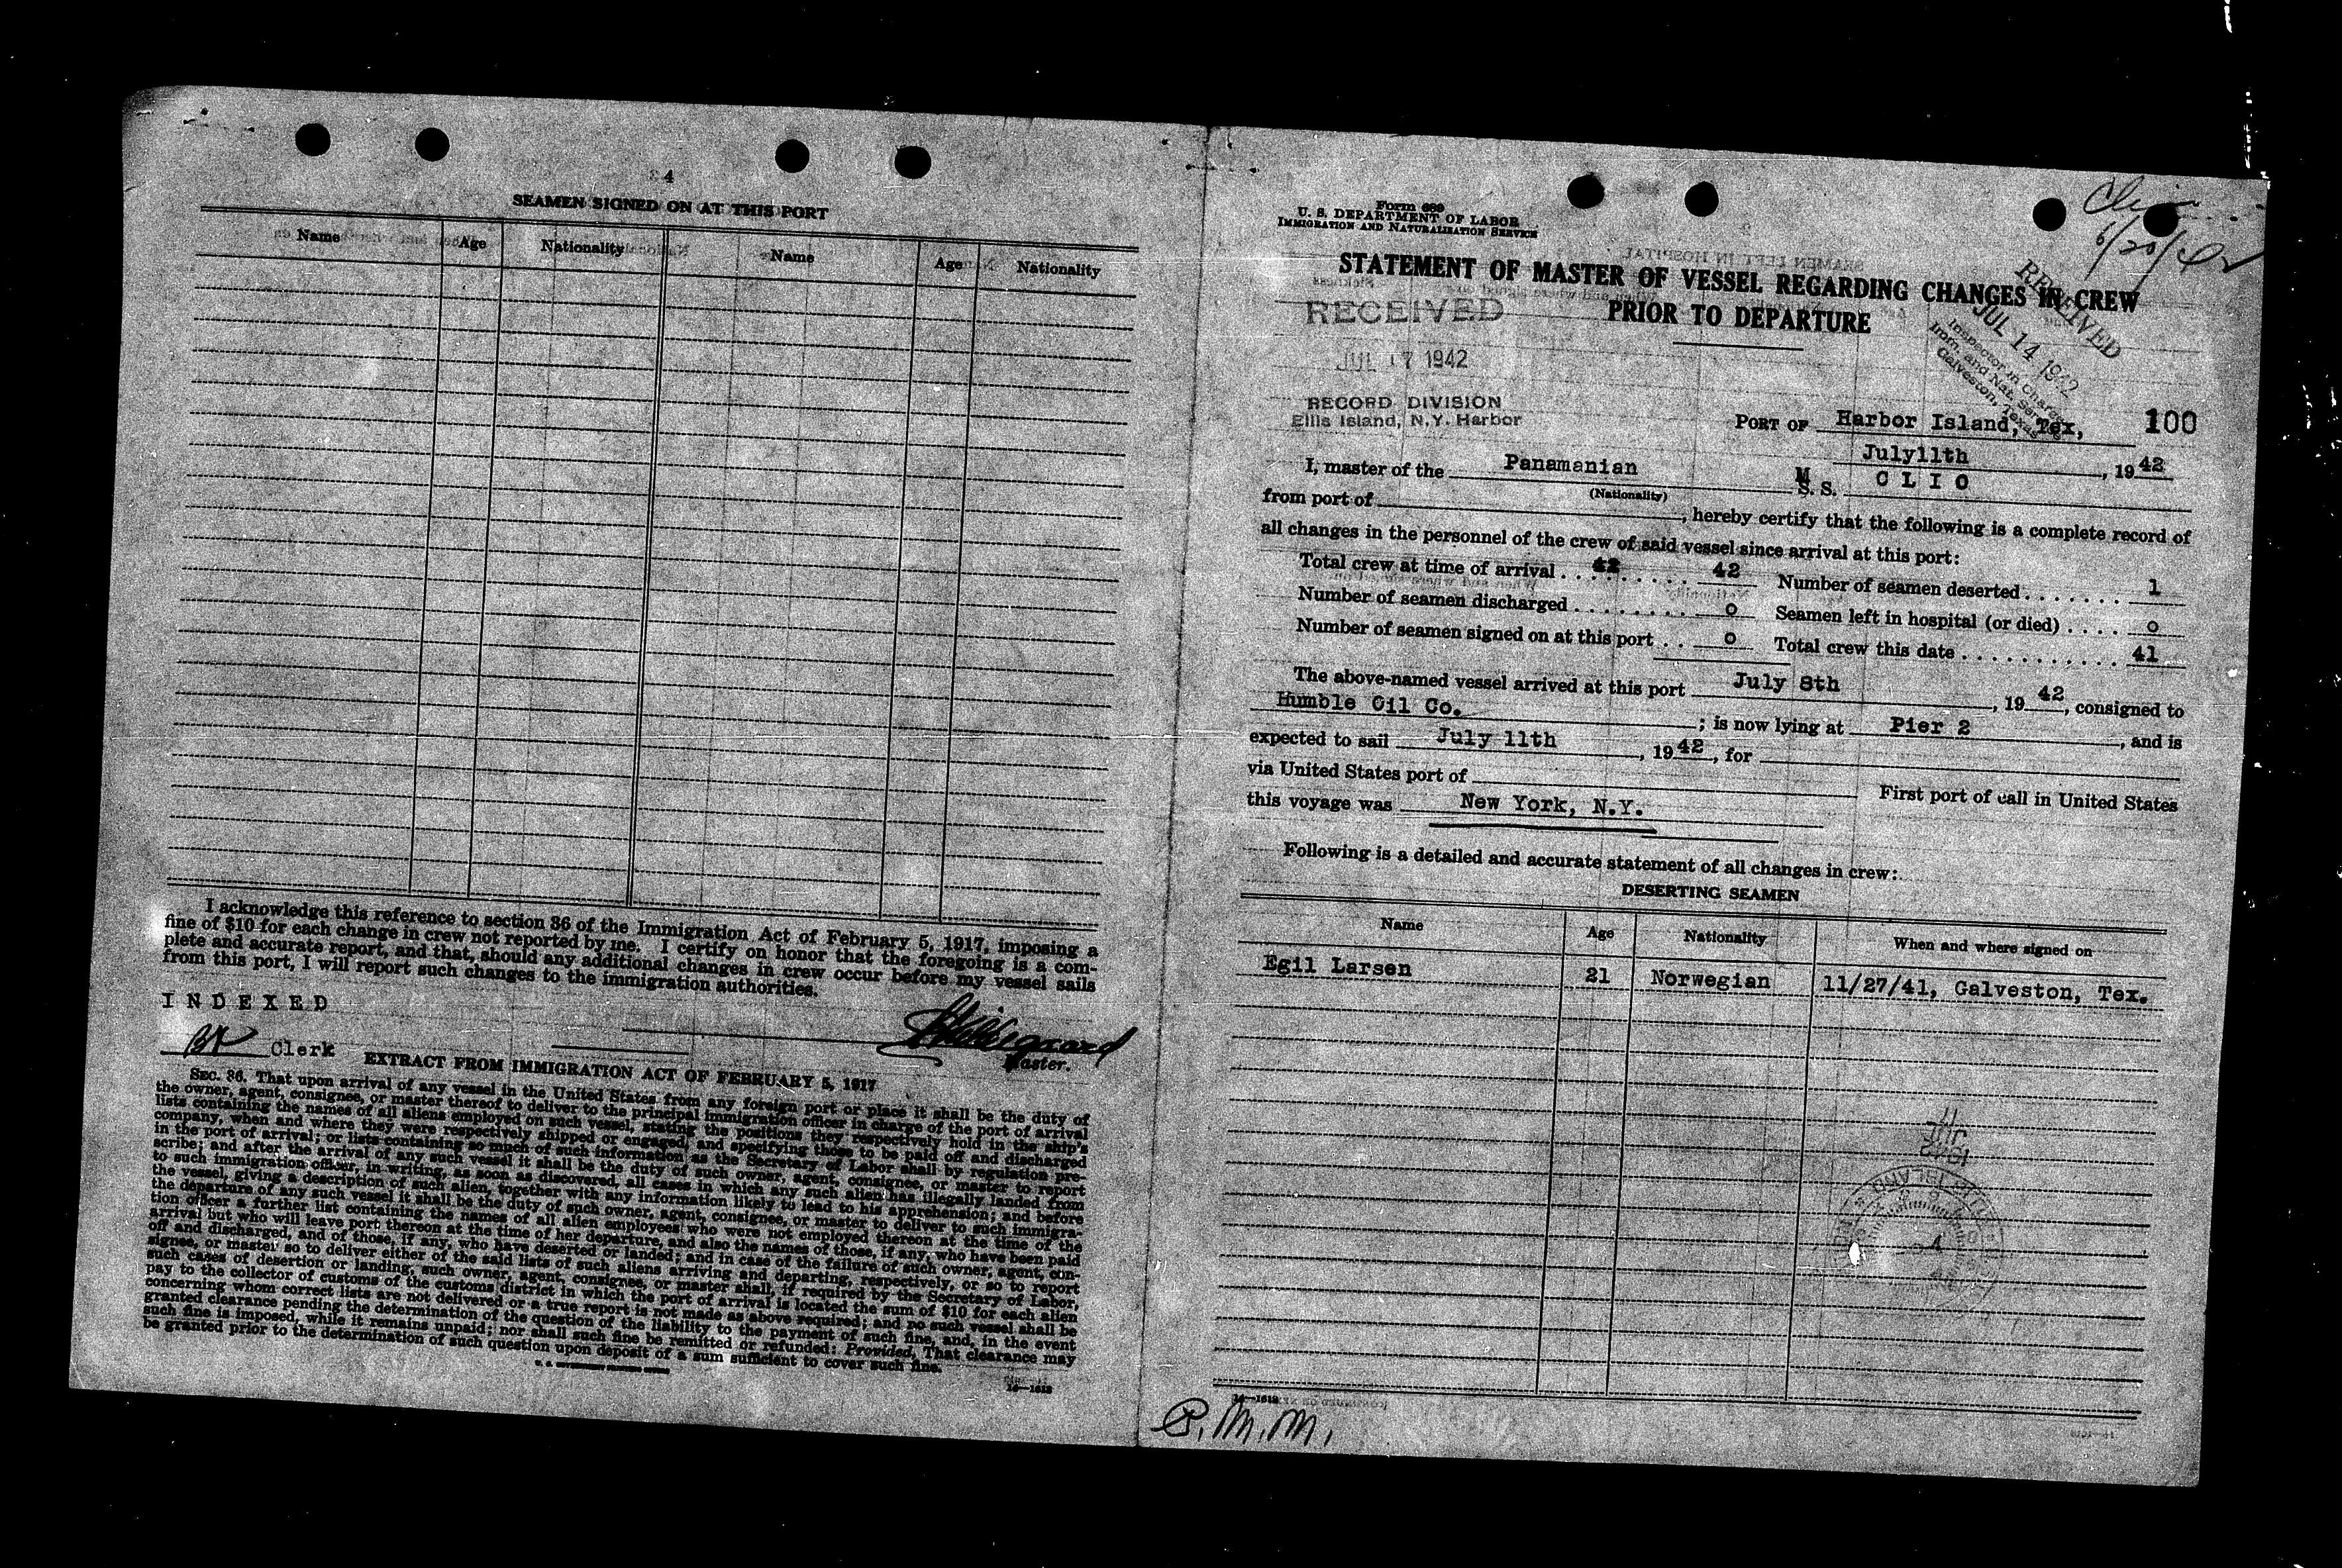 4
SEAMEN SIGNED ON AT THIS PORT
Name Age Nationality Name Age Nationality
I acknowledge this reference to section 36 of the Immigration Act of February 5, 1917, imposing a
fine of $10 for each change in crew not reported by me. I certify on honor that the foregoing is a com-
plete and accurate report, and that, should any additional changes in crew occur before my vessel sails
from this port, I will report such changes to the immigration authorities.
INDEXED
Clerk
Master.
EXTRACT FROM IMMIGRATION ACT OF FEBRUARY 5, 1917
SEC. 36. That upon arrival of any vessel in the United States from any foreign port or place it shall be the duty of
the owner, agent, consignee, or master thereof to deliver to the principal immigration officer in charge of the port of arrival
lists containing the names of all aliens employed on such vessel, stating the positions they respectively hold in the ship's
company, when and where they were respectively shipped or engaged, and specifying those to be paid off and discharged
in the port of arrival; or lists containing so much of such information as the Secretary of Labor shall by regulation pre-
scribe; and after the arrival of any such vessel it shall be the duty of such owner, agent, consignee, or master to report
to such immigration officer, in writing, as soon as discovered, all cases in which any such alien has illegally landed from
the vessel, giving a description of such alien, together with any information likely to lead to his apprehension; and before
the departure of any such vessel it shall be the duty of such owner, agent, consignee, or master to deliver to such immigra-
tion officer a further list containing the names of all alien employees who were not employed thereon at the time of the
arrival but who will leave port thereon at the time of her departure, and also the names of those, if any, who have been paid
off and discharged, and of those, if any, who have deserted or landed; and in case of the failure of such owner, agent, con-
signee, or master so to deliver either of the said lists of such aliens arriving and departing, respectively, or so to report
such cases of desertion or landing, such owner, agent, consignee, or master shall, if required by the Secretary of Labor,
pay to the collector of customs of the customs district in which the port of arrival is located the sum of $10 for each alien
concerning whom correct lists are not delivered or a true report is not made as above required; and no such vessel shall be
granted clearance pending the determination of the question of the liability to the payment of such fine, and, in the event
such fine is imposed, while it remains unpaid; nor shall such fine be remitted or refunded: Provided, That clearance may
be granted prior to the determination of such question upon deposit of a sum sufficient to cover such fine.
U. S. GOVERNMENT PRINTING OFFICE
14—1613
Form 689
U. S. DEPARTMENT OF LABOR
IMMIGRATION AND NATURALIZATION SERVICE
6/20/42
STATEMENT OF MASTER OF VESSEL REGARDING CHANGES IN CREW
PRIOR TO DEPARTURE
RECEIVED
JUL 17 1942
RECORD DIVISION
Ellis Island, N.Y. Harbor
RECEIVED
JUL 14 1942
Inspector in Charge
Imm. and Nat. Service
Galveston, Texas
PORT OF Harbor Island, Tex, 100
July11th, 1942
I, master of the Panamanian M S. S. CLIO
(Nationality)
from port of , hereby certify that the following is a complete record of
all changes in the personnel of the crew of said vessel since arrival at this port:
Total crew at time of arrival 42 42 Number of seamen deserted 1
Number of seamen discharged 0 Seamen left in hospital (or died) 0
Number of seamen signed on at this port 0 Total crew this date 41
The above-named vessel arrived at this port July 8th, 1942, consigned to
Humble Oil Co. ; is now lying at Pier 2, and is
expected to sail July 11th, 1942, for
via United States port of First port of call in United States
this voyage was New York, N.Y.
Following is a detailed and accurate statement of all changes in crew:
DESERTING SEAMEN
Name Age Nationality When and where signed on
Egil Larsen 21 Norwegian 11/27/41, Galveston, Tex.
14—1613
P.M.M.